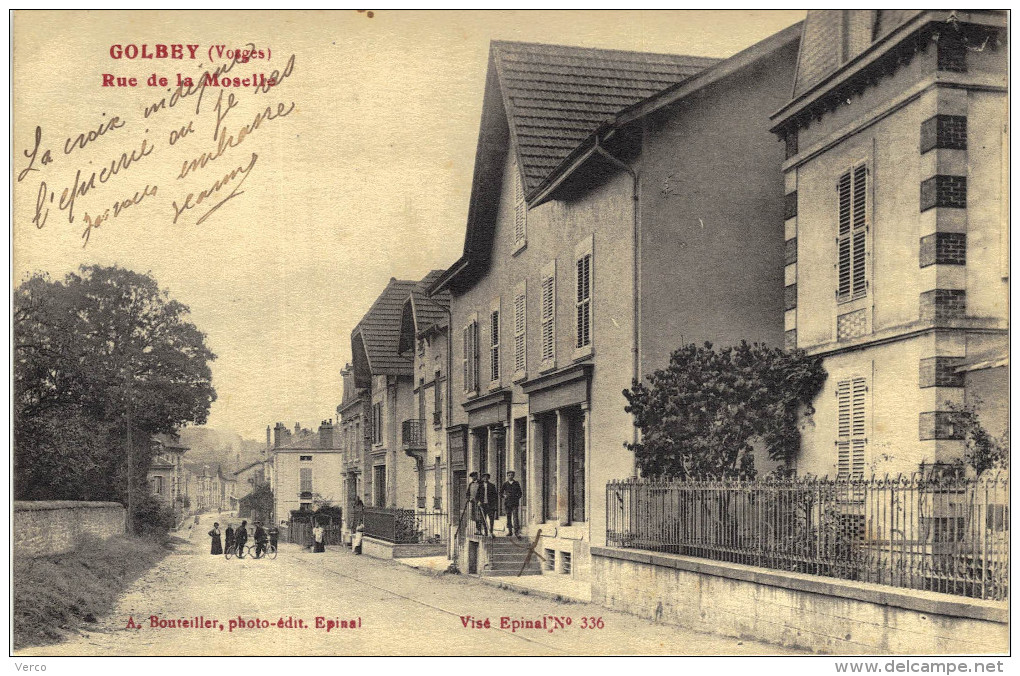 GOLBEY (Vosges)
Rue de la Moselle
La croix indique
l'epicerie ou je vais
vous embrasse
Jeanne
A. Bouteiller, photo-édit. Epinal
Visé Epinal Nº 336
Verco
www.delcampe.net